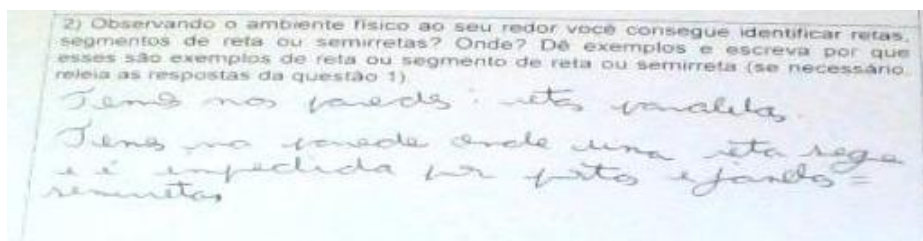 2) Observando o ambiente físico ao seu redor você consegue identificar retas,
segmentos de reta ou semirretas? Onde? Dê exemplos e escreva por que
esses são exemplos de reta ou segmento de reta ou semirreta (se necessário
releia as respostas da questão 1)
Temos nas paredes: retas paralelas.
Temos na parede onde uma reta segue
e é impedida por portas e janelas =
semirretas